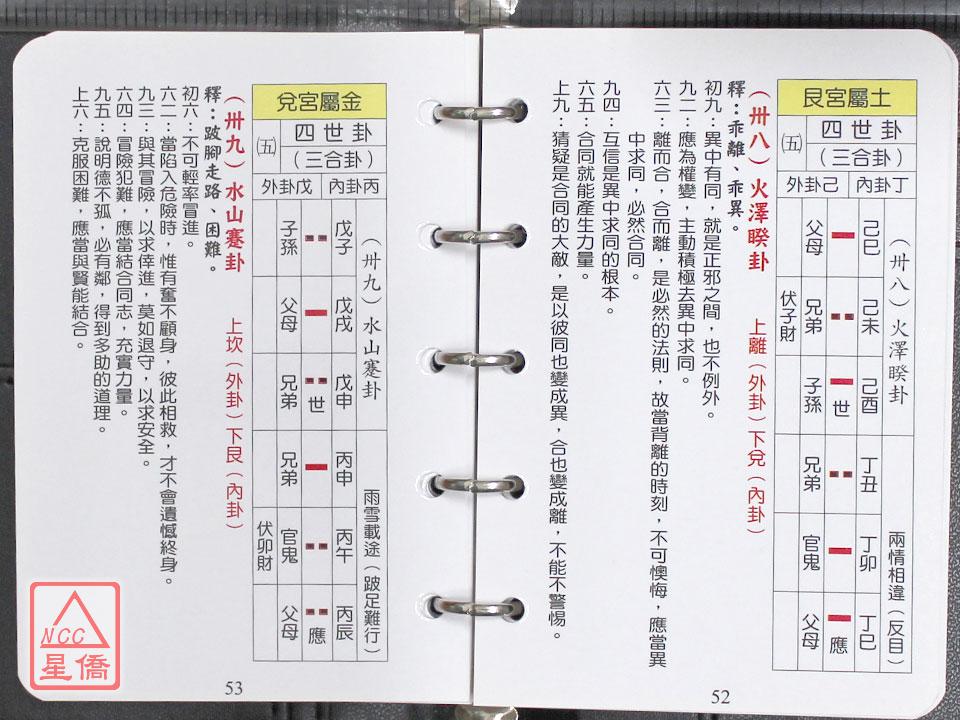 艮宮屬土
四世卦
（三合卦）
（五）
外卦己
內卦丁
（卅八）火澤睽卦
兩情相違（反目）
己巳
己未
己酉
丁丑
丁卯
丁巳
世
應
父母
兄弟
子孫
兄弟
官鬼
父母
伏子財
（卅八）火澤睽卦
上離（外卦）下兌（內卦）
釋：乖離、乖異。
初九：異中有同，就是正邪之間，也不例外。
九二：應為權變，主動積極去異中求同。
六三：離而合，合而離，是必然的法則，故當背離的時刻，不可懊悔，應當異
中求同，必然合同。
九四：互信是異中求同的根本。
六五：合同就能產生力量。
上九：猜疑是合同的大敵，是以彼同也變成異，合也變成離，不能不警惕。
52
兌宮屬金
四世卦
（三合卦）
（五）
外卦戊
內卦丙
（卅九）水山蹇卦
雨雪載途（跛足難行）
戊子
戊戌
戊申
丙申
丙午
丙辰
世
應
子孫
父母
兄弟
兄弟
官鬼
父母
伏卯財
（卅九）水山蹇卦
上坎（外卦）下艮（內卦）
釋：跛腳走路、困難。
初六：不可輕率冒進。
六二：當陷入危險時，惟有奮不顧身，彼此相救，才不會遺憾終身。
九三：與其冒險，以求倖進，莫如退守，以求安全。
六四：冒險犯難，應當結合同志，充實力量。
九五：說明德不孤，必有鄰，得到多助的道理。
上六：克服困難，應當與賢能結合。
53
NCC
星僑